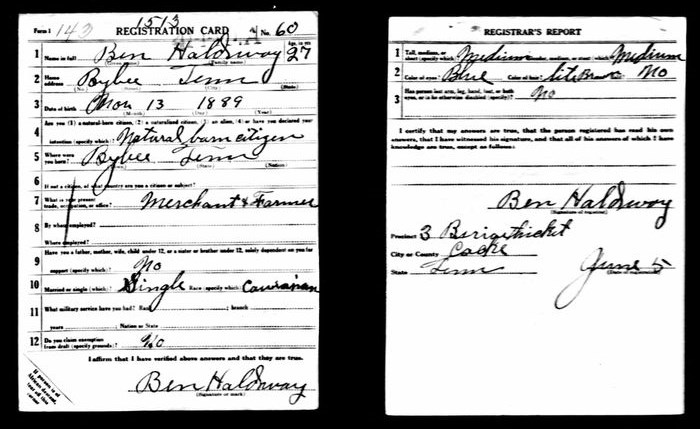 1513
Form 1 143 REGISTRATION CARD No. 60
1 Name in full Ben Haldway Age, in yrs 27
(Given name) (Family name)
2 Home address Bybee Tenn
(No.) (Street) (City) (State)
3 Date of birth Nov 13 1889
(Month) (Day) (Year)
4 Are you (1) a natural-born citizen, (2) a naturalized citizen, (3) an alien, (4) or have you declared your
intention (specify which)? Natural born citizen
5 Where were you born? Bybee Tenn
(Town) (State) (Nation)
6 If not a citizen, of what country are you a citizen or subject?
7 What is your present trade, occupation, or office? Merchant & Farmer
8 By whom employed?
Where employed?
9 Have you a father, mother, wife, child under 12, or a sister or brother under 12, solely dependent on you for
support (specify which)? No
10 Married or single (which)? Single Race (specify which)? Caucasian
11 What military service have you had? Rank ; branch
years ; Nation or State
12 Do you claim exemption from draft (specify grounds)? No
I affirm that I have verified above answers and that they are true.
Ben Haldway
(Signature or mark)
If person is of African descent,
REGISTRAR'S REPORT
1 Tall, medium, or short (specify which)? Medium Slender, medium, or stout (which)? Medium
2 Color of eyes? Blue Color of hair? Lite Brown No
3 Has person lost arm, leg, hand, foot, or both eyes, or is he otherwise disabled (specify)? No
I certify that my answers are true, that the person registered has read his own
answers, that I have witnessed his signature, and that all of his answers of which I have
knowledge are true, except as follows:
Ben Haldway
(Signature of registrar)
Precinct 3
City or County Cocke
State Tenn June 5
(Date of registration)